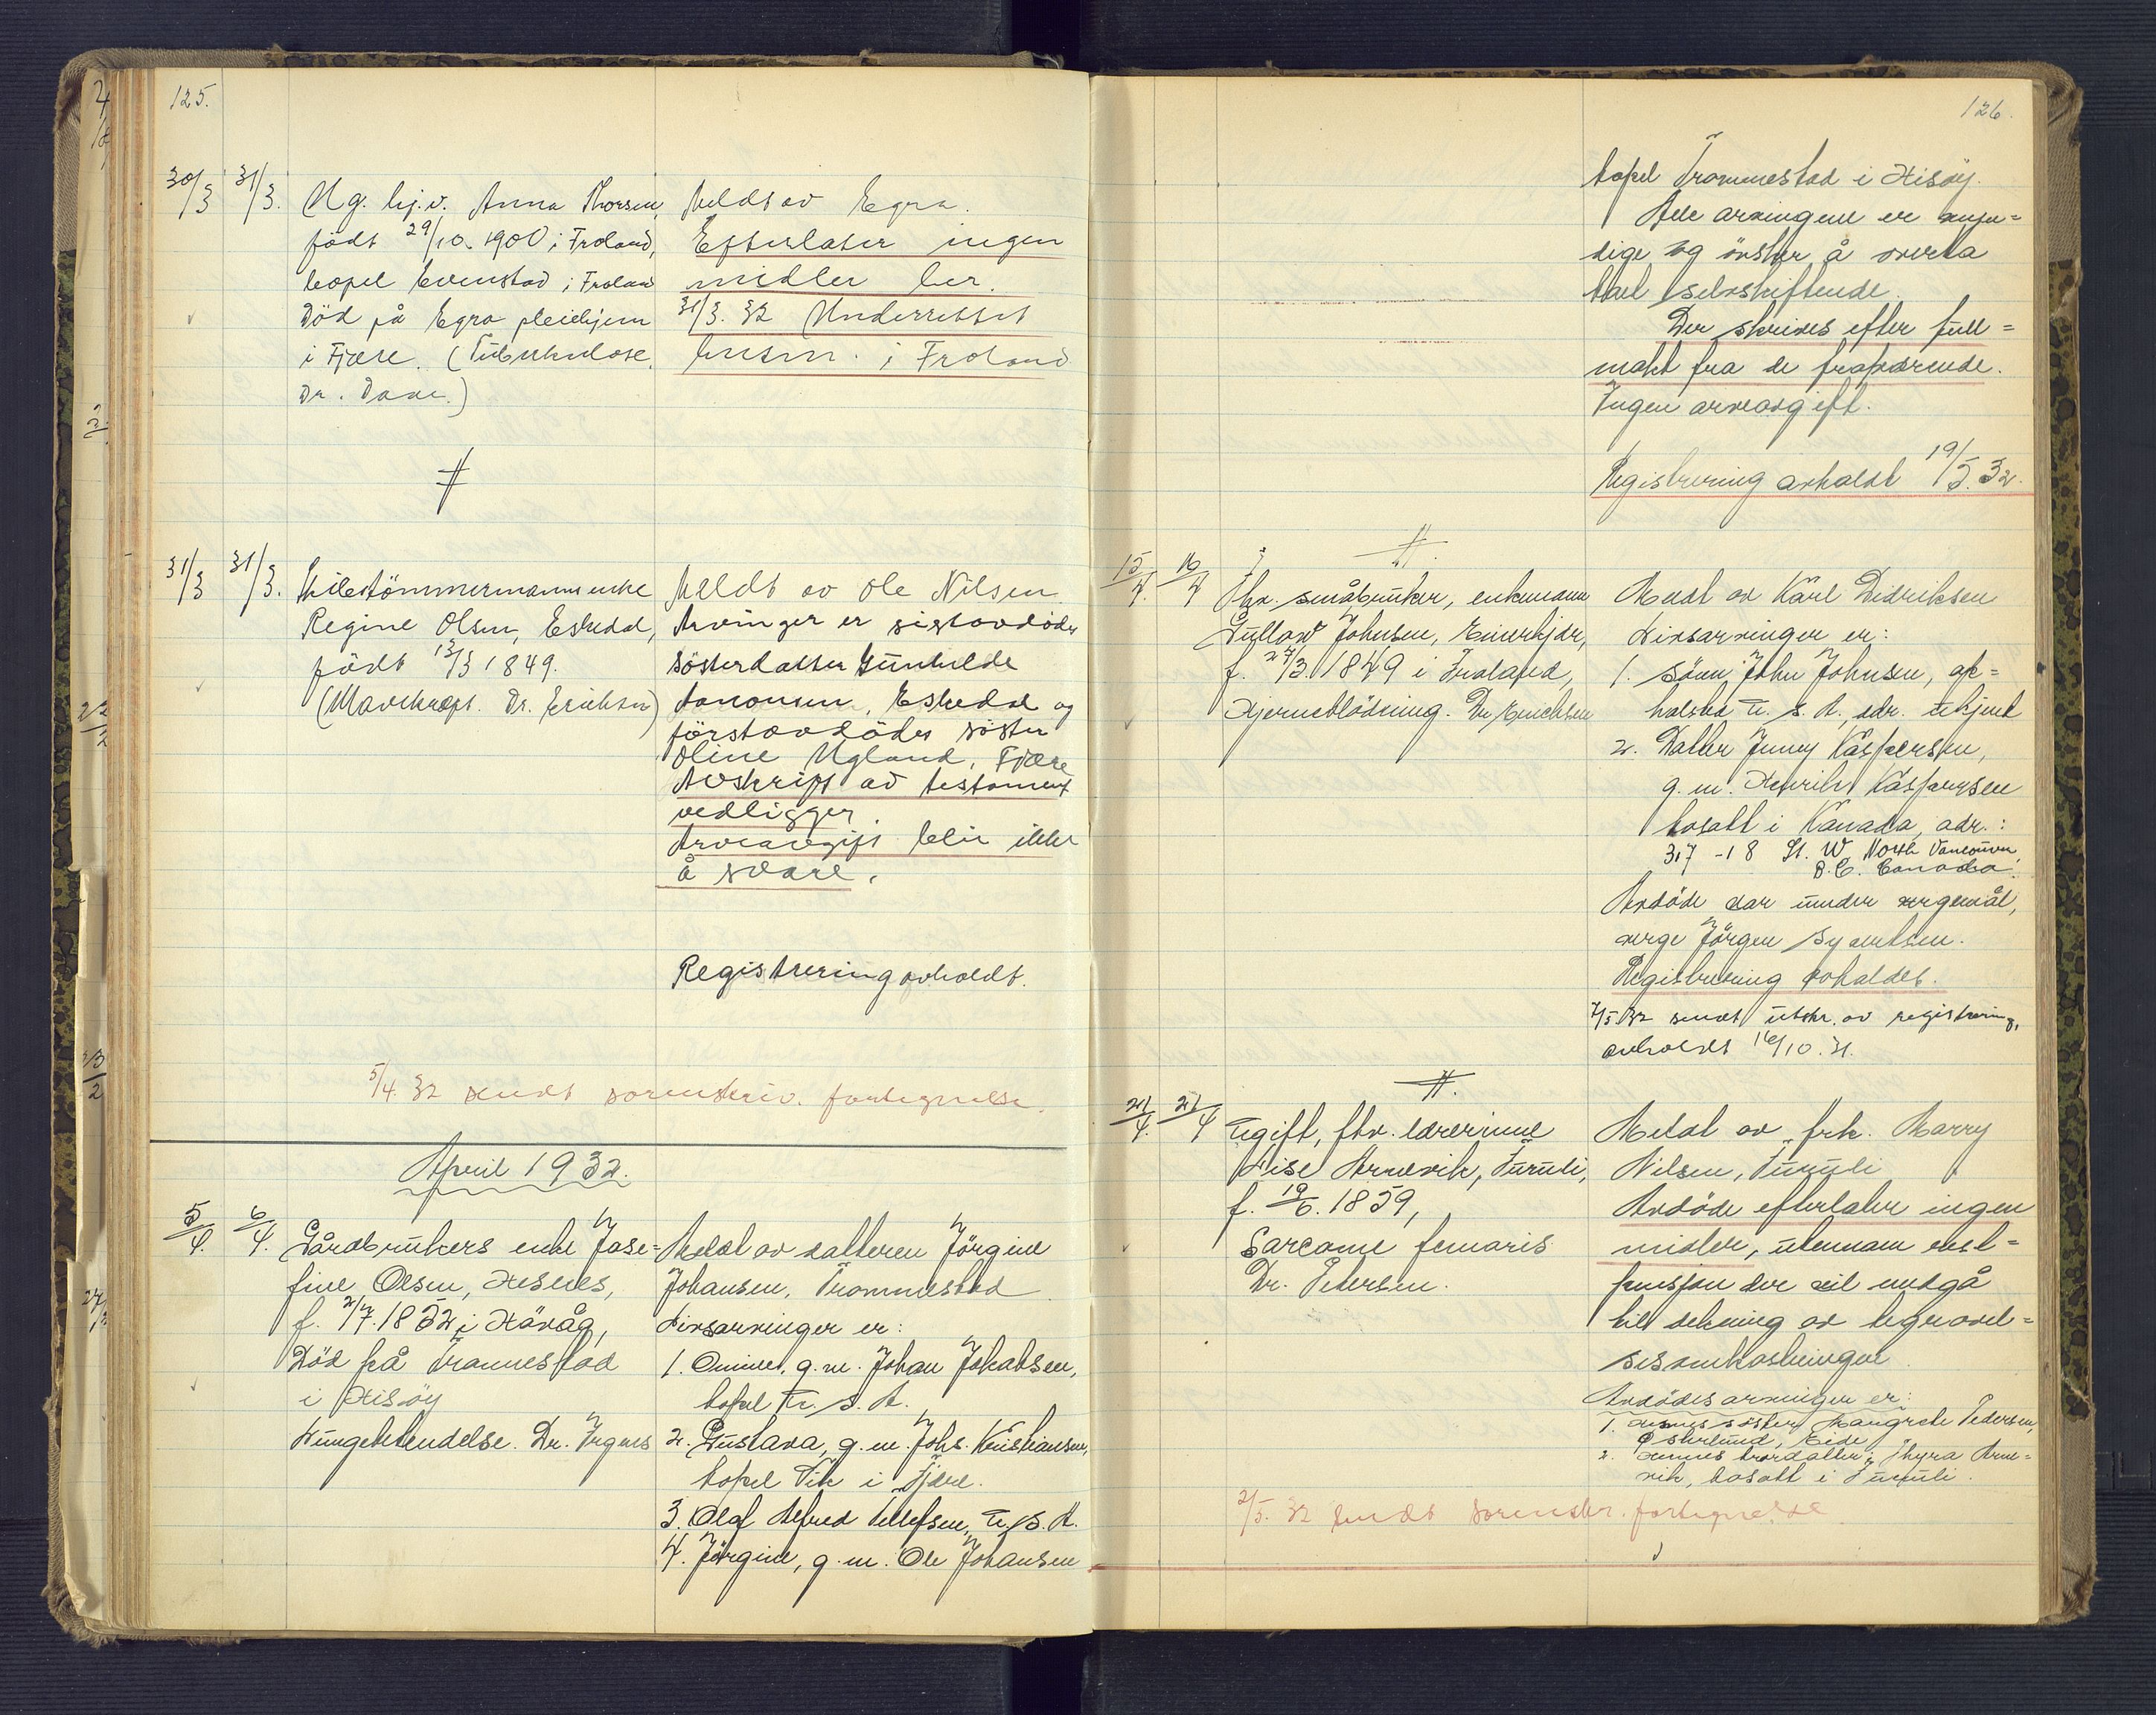 125.
30/3 31/3. Ug. hj.v. Anna Thorsen,
födt 29/10. 1900 i Froland,
bopel Evenstad i Froland
Död på Egra pleiehjem
i Fjære. (Tuberkulose.
Dr. Dave.)
Meldt av Egra.
Efterlater ingen
midler her.
31/3. 32 Underrettet
lensm. i Froland
31/3 31/3. Hviletömmermannsenke
Regine Olsen, Eskedal,
födt 13/3 1849.
(Mavekreft. Dr. Erichsen)
Meldt av Ole Nilsen
Arvinger er sistavdödes
sösterdatter Gunhilde
Aanonsen, Eskedal og
förstavdödes söster
Oline Ugland, Fjære
Avskrift av testament
vedligger.
Arveavgift blir ikke
å svare.
Registrering avholdt.
5/4. 32 sendt sorenskriv. fortegnelse.
April 1932.
5/4. 6/4. Gårdbrukers enke Jose=
fine Olsen, Hesnes,
f. 2/7. 1852 i Hövåg,
Död på Trommestad
i Hisöy
Lungebetendelse. Dr. Vrgnes
Meldt av datteren Jörgine
Johansen, Trommestad
Livsarvinger er:
1. Omine, g.m. Johan Jakobsen,
bopel U. S. A.
2. Gustava, g.m. Johs. Kristiansen,
bopel Vik i Fjære.
3. Olaf Alfred Tellefsen, U. S. A.
4. Jörgine, g.m. Ole Johansen
126.
bopel Trommestad i Hisöy.
Alle arvingene er myn=
dige og önsker å overta
boet selvskiftende.
Der skrives efter full=
makt fra de fraværende.
Ingen arveavgift.
Registrering avholdt 19/5. 32.
15/4. 16/4 Fhv. småbruker, enkemann
Gullow Johnsen, Einerkjær,
f. 27/3. 1849 i Froland,
Hjerneblödning. Dr. Erichsen
Meldt av Karl Didriksen
Livsarvinger er:
1. Sönn John Johnsen, op=
holdsted U. S. A., adr. ukjent
2. Datter Jenny Kaspersen,
g.m. Henrik Kaspersen
bosatt i Kanada, adr.:
317 - 18 St. W. North Vancouver,
B.C. Canada.
Avdöde var under vergemål,
verge Jörgen Syvertsen.
Registrering avholdes.
7/5 32 sendt utskr. av registrering,
avholdt 16/10. 31.
21/4. 21/4 Ugift, fhv. lærerinne
Lise Arnevik, Furuli,
f. 19/6. 1859,
Sarcome femoris
Dr. Pedersen.
Meldt av frk. Marry
Nilsen, Furuli
Avdöde efterlater ingen
midler, utennam
pensjon der vil medgå
til dekning av begravel=
sesomkostningene.
Avdödes arvinger er:
1. dennes söster, Margrete Pedersen,
Österlund, Eide
2. dennes brordatter, Thyra Arne=
vik, bosatt i Furuli.
2/5. 32 sendt sorenskr. fortegnelse